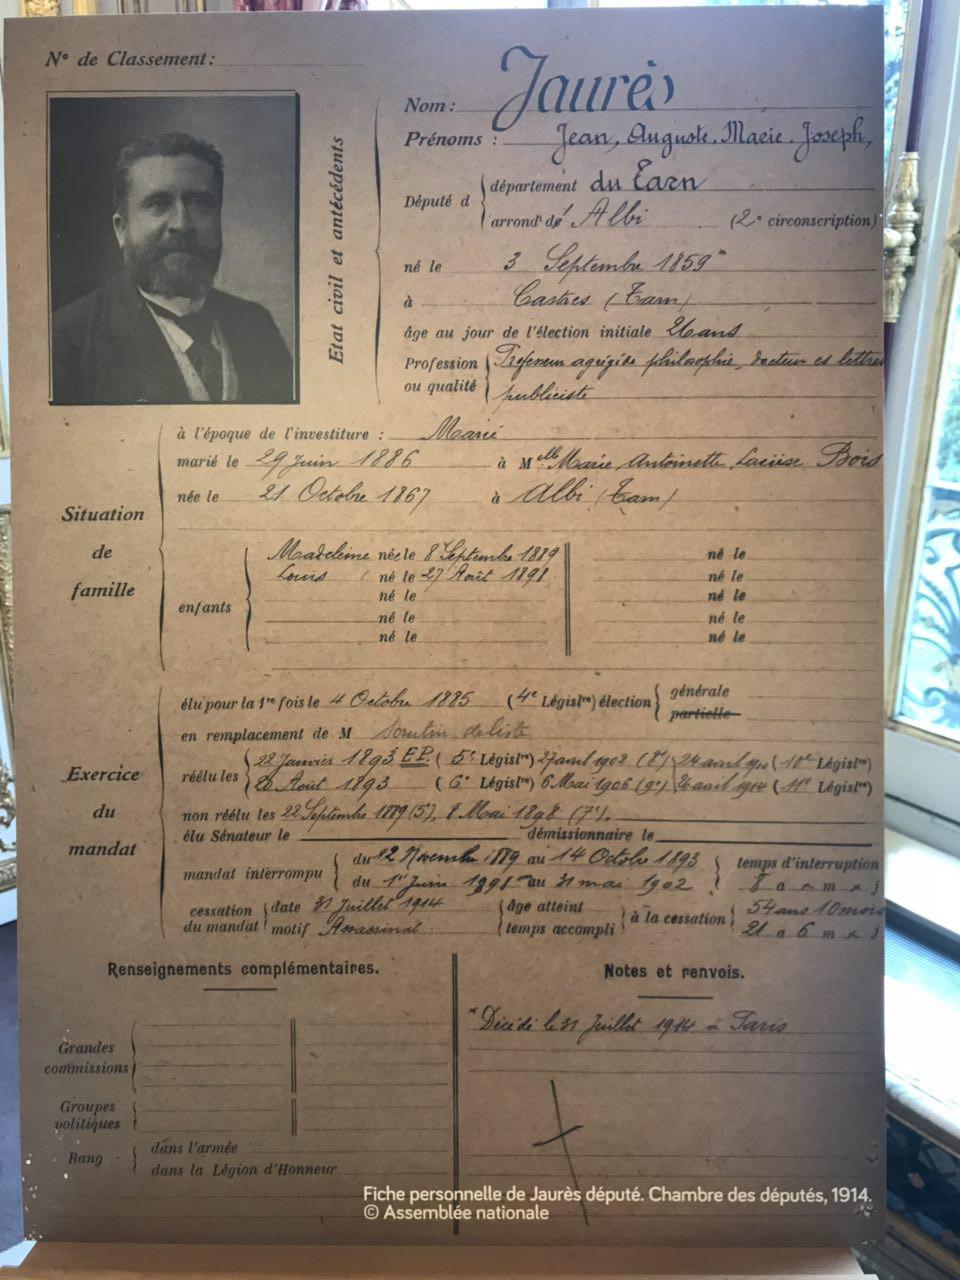 N° de Classement:
Etat civil et antécédents
Nom: Jaurès
Prénoms: Jean, Auguste, Marie, Joseph,
Député d
département du Tarn
arrondt d' Albi (2e circonscription)
né le 3 Septembre 1859*
à Castres (Tarn)
âge au jour de l'élection initiale 26 ans
Profession ou qualité
Professeur agrégé de philosophie, docteur es lettres
publiciste
Situation de famille
à l'époque de l'investiture: Marié
marié le 29 Juin 1886 à Melle Marie Antoinette Louise Bois
née le 21 Octobre 1867 à Albi (Tarn)
enfants
Madeleine née le 8 Septembre 1889 né le
Louis né le 27 Août 1898 né le
né le né le
né le né le
né le né le
Exercice du mandat
élu pour la 1re fois le 4 Octobre 1885 (4e Législre) élection générale
partielle
en remplacement de M Scrutin de liste
réélu les
22 Janvier 1893 E.P. (5e Législre) 27 avril 1902 (8e) 24 avril 1910 (10e Législre)
20 Août 1893 (6e Législre) 6 Mai 1906 (9e) 26 avril 1914 (11e Législre)
non réélu les 22 Septembre 1889 (5e), 8 Mai 1898 (7e).
élu Sénateur le démissionnaire le
mandat interrompu
du 12 Novembre 1889 au 14 Octobre 1893
du 1er Juin 1898 au 31 mai 1902
temps d'interruption
8 a " m " j
cessation du mandat
date 31 Juillet 1914
motif Assassinat
âge atteint
temps accompli
à la cessation
54 ans 10 mois
21 a 6 m " j
Renseignements complémentaires.
Grandes commissions
Groupes politiques
Rang
dans l'armée
dans la Légion d'Honneur
Notes et renvois.
*Décédé le 31 Juillet 1914 à Paris
Fiche personnelle de Jaurès député. Chambre des députés, 1914.
© Assemblée nationale